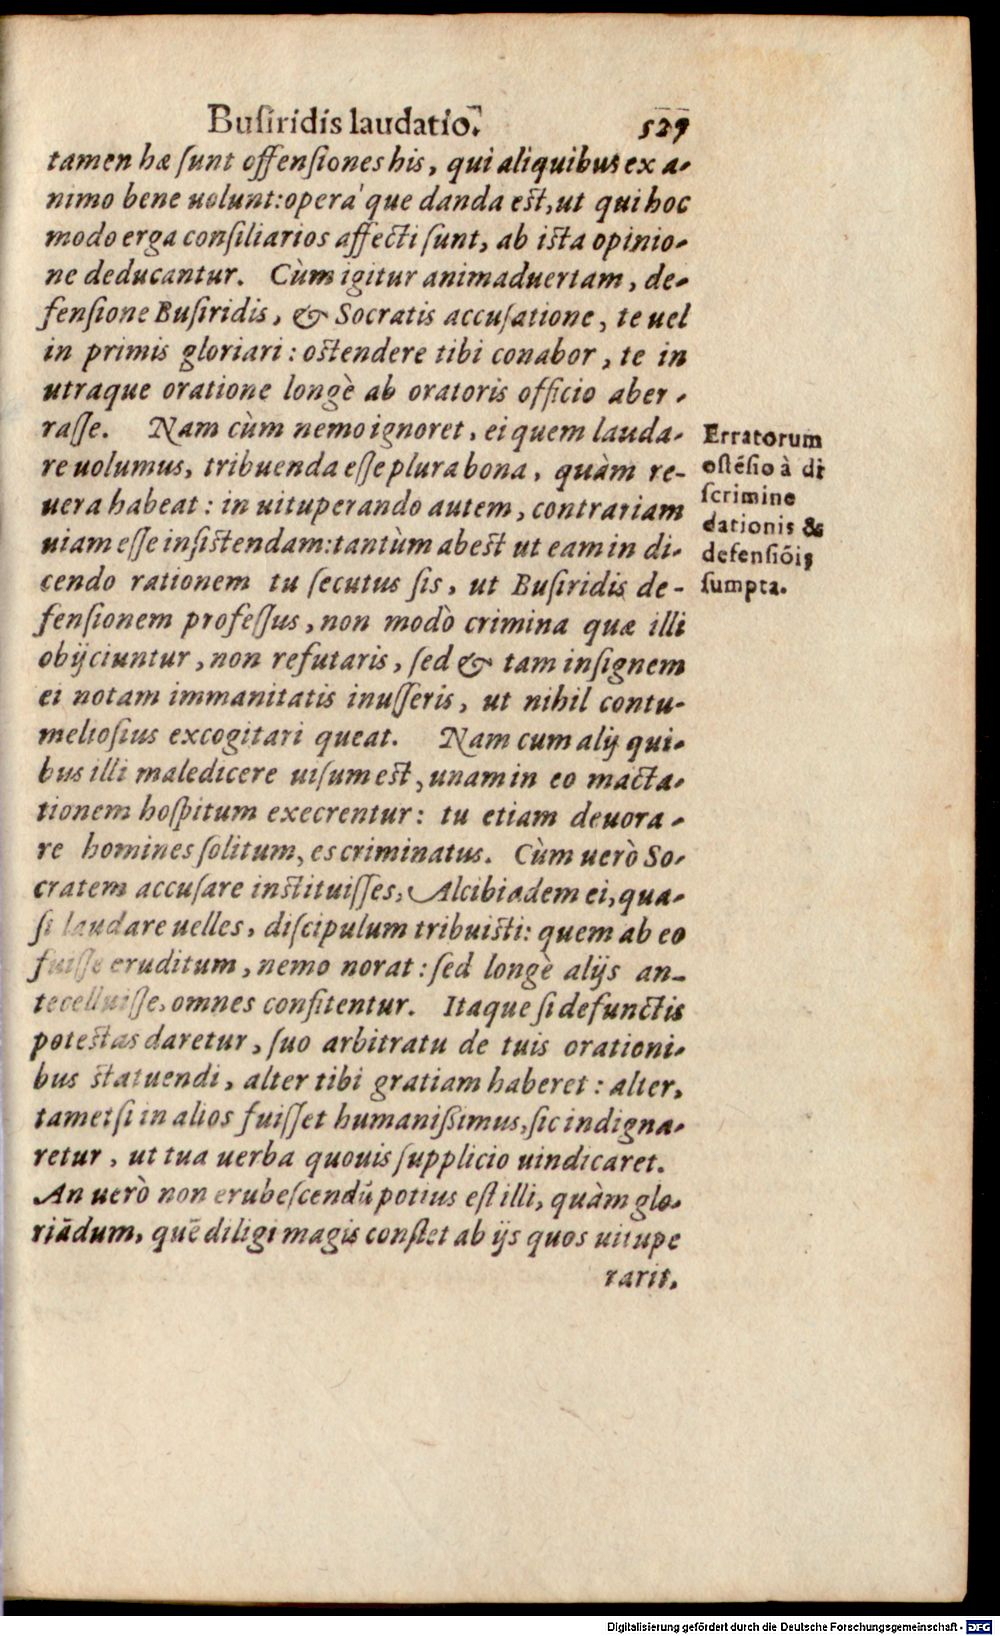 Buſiridis laudatio. 527
tamen hæ ſunt offenſiones his, qui aliquibus ex a-
nimo bene uolunt: opera´que danda est, ut qui hoc
modo erga conſiliarios affecti ſunt, ab iſta opinio-
ne deducantur. Cùm igitur animaduertam, de-
fenſione Buſiridis, & Socratis accuſatione, te uel
in primis gloriari: oſtendere tibi conabor, te in
utraque oratione longè ab oratoris officio aber-
raſſe. Nam cùm nemo ignoret, ei quem lauda-
re uolumus, tribuenda eſſe plura bona, quàm re-
uera habeat: in uituperando autem, contrariam
uiam eſſe inſiſtendam: tantùm abeſt ut eam in di-
cendo rationem tu ſecutus ſis, ut Buſiridis de-
fenſionem profeſſus, non modò crimina quæ illi
obijciuntur, non refutaris, ſed & tam inſignem
ei notam immanitatis inuſſeris, ut nihil contu-
melioſius excogitari queat. Nam cum alij qui-
bus illi maledicere uiſum eſt, unam in eo macta-
tionem hoſpitum execrentur: tu etiam deuora-
re homines ſolitum, es criminatus. Cùm uerò So-
cratem accuſare inſtituiſſes, Alcibiadem ei, qua-
ſi laudare uelles, diſcipulum tribuiſti: quem ab eo
fuiſſe eruditum, nemo norat: ſed longè alijs an-
tecelluiſſe, omnes confitentur. Itaque ſi defunctis
poteſtas daretur, ſuo arbitratu de tuis orationi-
bus ſtatuendi, alter tibi gratiam haberet: alter,
tametſi in alios fuiſſet humaniſſimus, ſic indigna-
retur, ut tua uerba quouis ſupplicio uindicaret.
An uerò non erubeſcendũ potius eſt illi, quàm glo-
riãdum, quẽ diligi magis conſtet ab ijs quos uitupe
rarit.
Erratorum
oſtẽſio à di
ſcrimine
dationis &
defenſiõis
ſumpta.
Digitalisierung gefördert durch die Deutsche Forschungsgemeinschaft - DFG